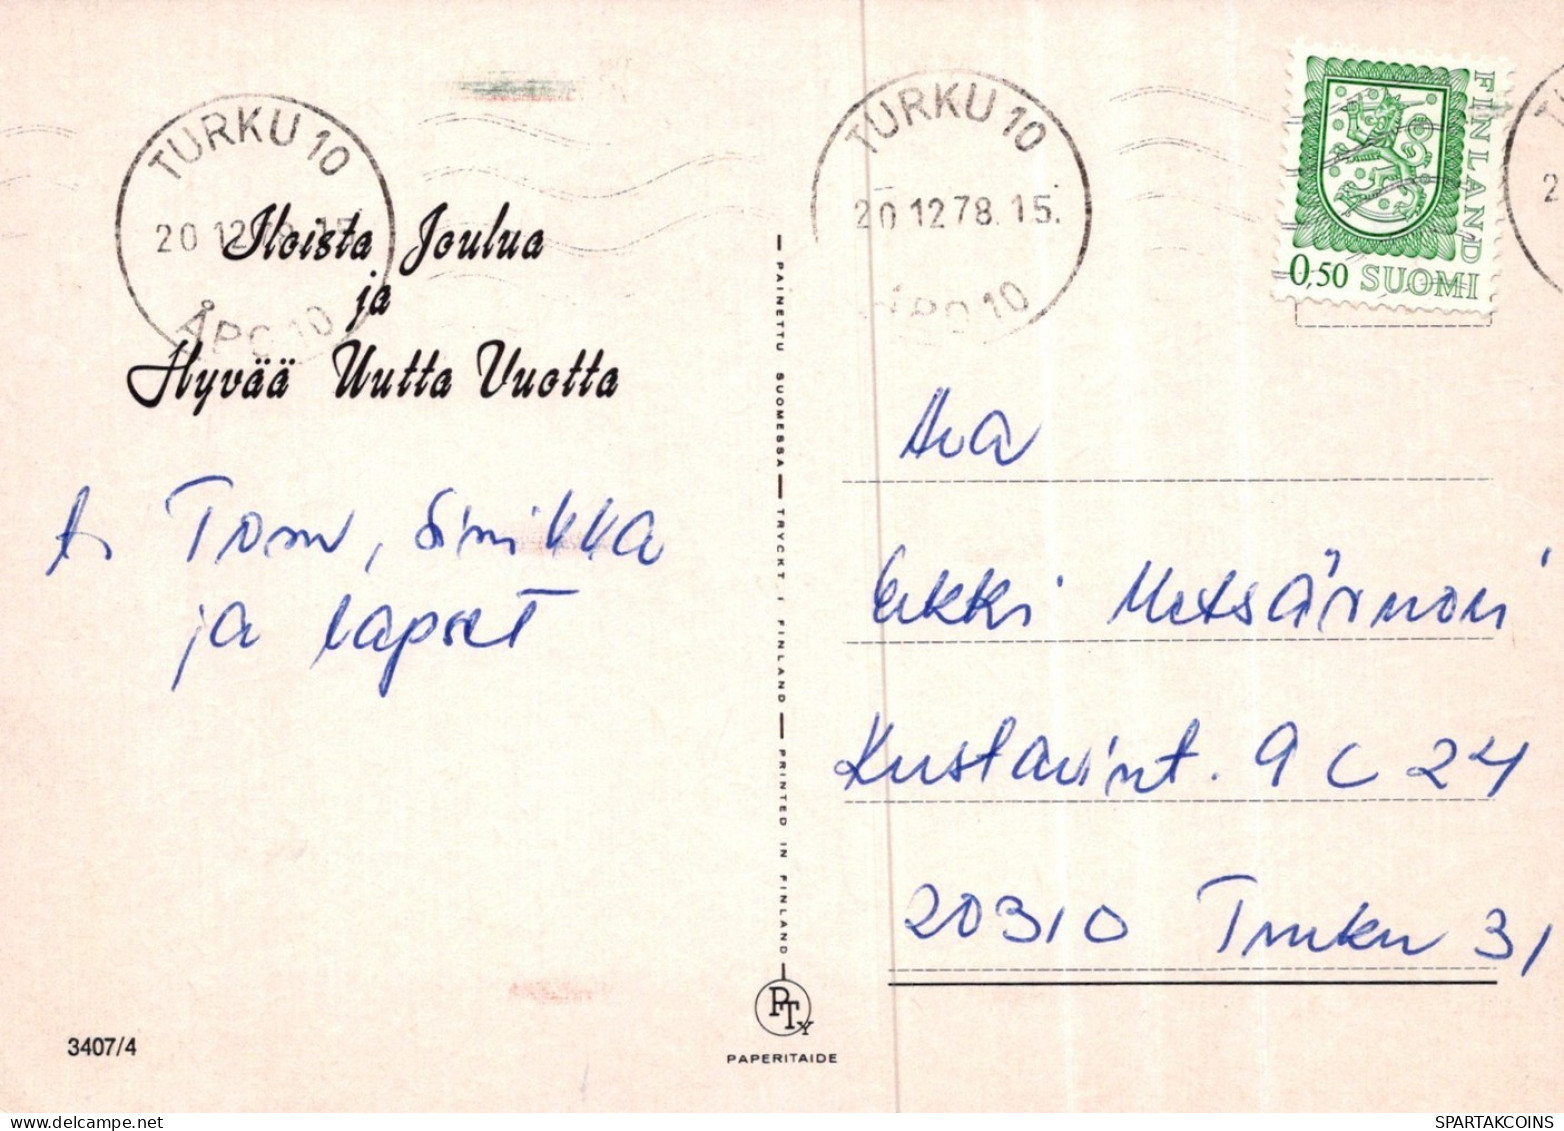 TURKU 10
20 12 78.15
ÅPO 10
TURKU 10
20 12 78.15.
ÅPO 10
FINLAND
0,50 SUOMI
Iloista Joulua
ja
Hyvää Uutta Vuotta
t. Tom, Sinikka
ja lapset
PAINETTU SUOMESSA — TRYCKT I FINLAND — PRINTED IN FINLAND
Hra
Erkki Metsärnon
Kustavint. 9 C 24
20310 Turku 31
PTy
PAPERITAIDE
3407/4
https://veryimportantlot.com
SPARTAKCOINS